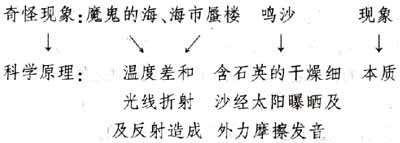 奇怪现象:魔鬼的海、海市蜃楼 鸣沙 现象
科学原理: 温度差和 含石英的干燥细 本质
光线折射 沙经太阳曝晒及
及反射造成 外力摩擦发音